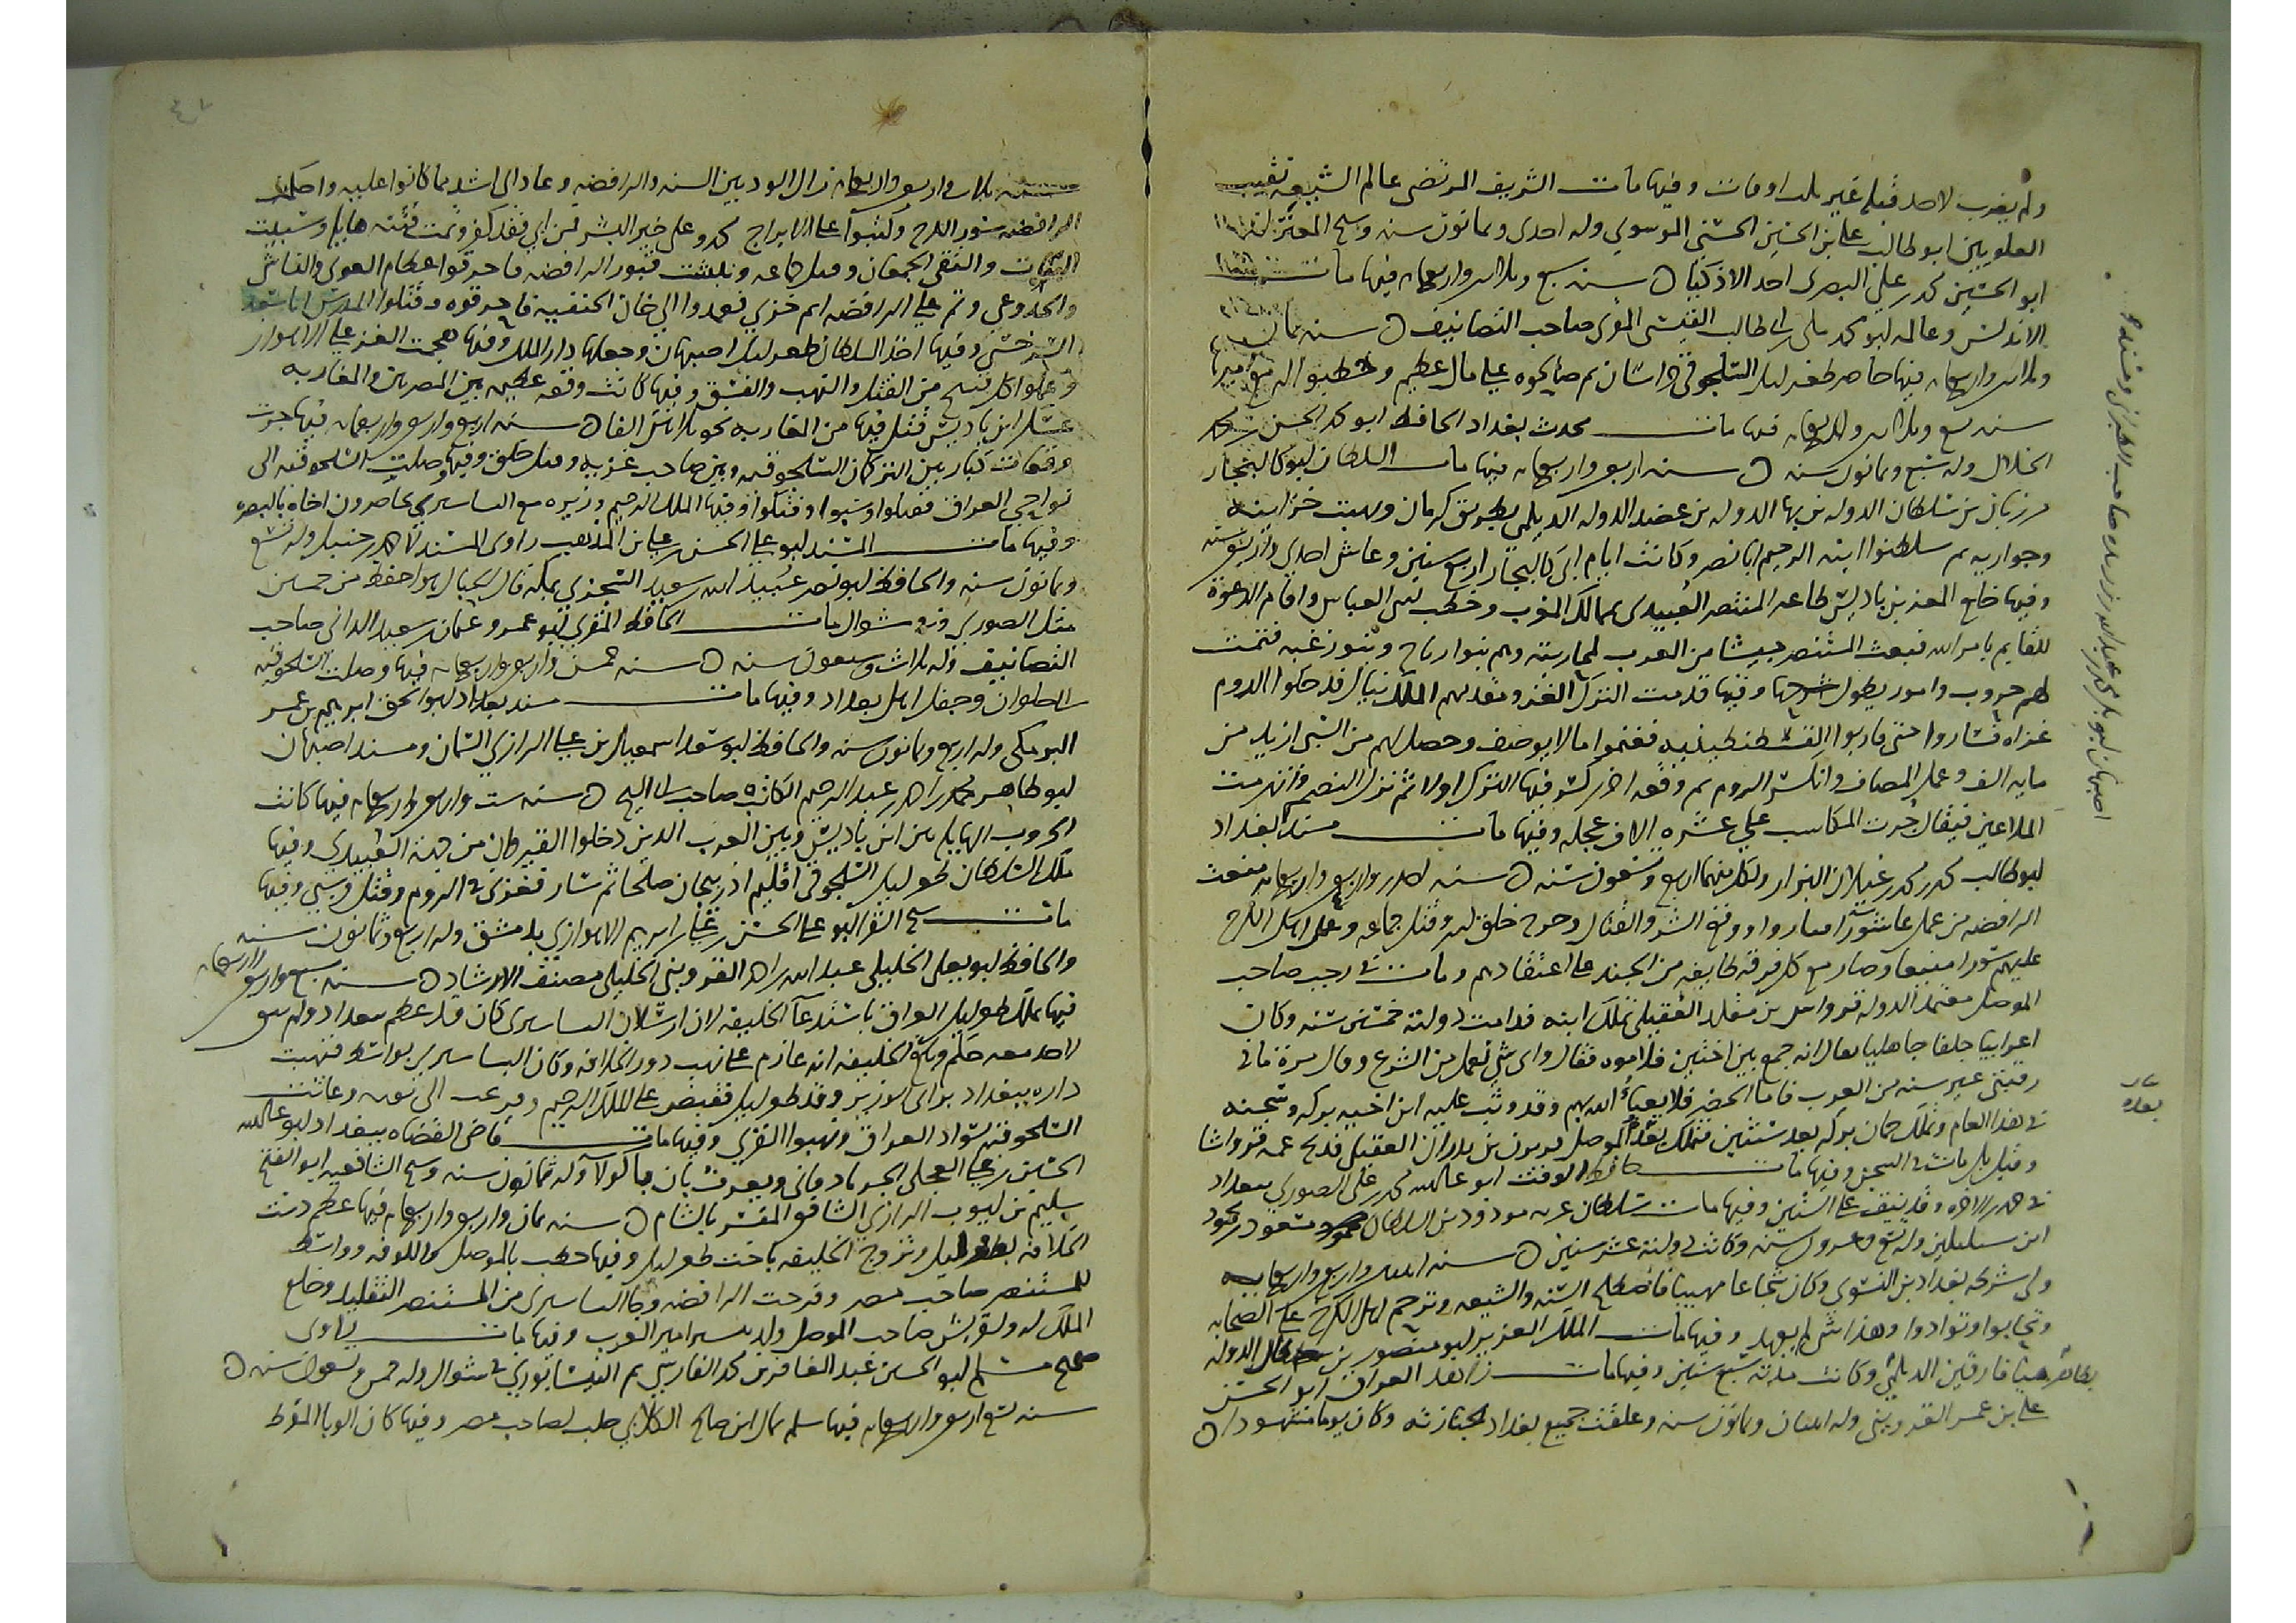 ولم يضرب لاحد قبله غير بلد اوقات وفيها مات الشريف المرتضى عالم الشيعه نقيب
العلويين ابو طالب علي بن الحسين الحسيني الموسوي وله احدى وثمانون سنه وشيخ المعتزله
ابو الحسين محمد بن علي البصري احد الاذكيا ه سنه سبع وثلاثين واربعمايه فيها مات
الاندلس وعالمه ابو محمد مكي بن ابي طالب القيسي المقري صاحب التصانيف ه سنه ثمان
وثلاثين واربعمايه فيها حاصر طغرلبك السلجوقي ثم صالحوه على مال عظيم وخطبوا له
سنه تسع وثلاثين واربعمايه فيها مات محدث بغداد الحافظ ابو محمد الحسن بن محمد
الخلال وله سبع وثمانون سنه ه سنه اربعين واربعمايه فيها مات السلطان ابو كاليجار
مرزبان بن سلطان الدوله بن بها الدوله بن عضد الدوله الديلمي بطريق كرمان ونهبت خزاينه
وجواريه ثم سلطنوا ابنه الرحيم ابا نصر وكانت ايام ابي كاليجار اربع سنين وعاش احدى واربعين سنه
وفيها خلع المعز بن باديس طاعه المنتصر العبيدي بممالك المغرب وخطب لبني العباس واقام الدعوة
للقايم بامر الله فبعث المستنصر جيشا من العرب لمحاربته وهم بنوا رياح وبنوز غبه فتمت
لهم حروب وامور يطول شرحها وفيها قدمت الترك الغز ومقدمهم الملك نيال فدخلوا الروم
غزاه فساروا حتى قاربوا القسطنطينيه فغنموا مالا يوصف وحصل لهم من السبي ازيد من
مايه الف وعمل المصاف وانكسر الروم ثم وقعه اخرى كسر فيها الترك اولا ثم نزل النصر وانهزمت
الملاعين فيقال جرت المكاسب على عشره الاف عجله وفيها مات مسند بغداد
ابو طالب محمد بن محمد بن غيلان البزاز وله اربع وتسعون سنه ه سنه احدى واربعين واربعمايه منعت
الرافضه من عمل عاشورا ووقع الشر والقتال وجرح خلق وقتل جماعه وعمل اهل الكرخ
عليهم سورا منيعا وصار مع كل فرقه طايفه من الجند على اعتقادهم ومات في رجب صاحب
الموصل معتمد الدوله قرواش بن مقلد العقيلي تملك ابنه فدامت دولته خمسين سنه وكان
اعرابيا جلفا جاهليا يقال انه جمع بين اختين فلاموه فقال واي شي نعمل من الشرع وقال مرة ما في
رقبتي غير سته من العرب فاما الحضر فلا يعبأ الله بهم وقد وثب عليه ابن اخيه بركه وسجنه
في هذا العام وتملك بركه بعد سنتين فتملك بعده الموصل قريش بن بدران العقيلي فذبح عمه قرواشا
وقيل بل مات في السجن وفيها مات حافظ الوقت ابو عبد الله محمد بن علي الصوري ببغداد
وقد نيف على الستين وفيها مات سلطان غزنه مودود بن السلطان مسعود بن محمود
ابن سبكتكين وله تسع وعشرون سنه وكانت دولته عشر سنين ه سنه اثنتين واربعين واربعمايه
ولي شرطه بغداد بن النسوي وكان شجاعا مهيبا فاصطلح السنه والشيعه وترحم اهل الكرخ على الصحابه
وتحابوا وتوادوا وهذا شي لم يعهد وفيها مات الملك العزيز ابو منصور بن جلال الدوله
بظاهر ميا فارقين الديلمي وكانت مدته سبع سنين وفيها مات زاهد العراق ابو الحسن
علي بن عمر القزويني وله اثنتان وثمانون سنه وغلقت جميع بغداد لجنازته وكان يوما مشهودا ه
سنه ثلاث واربعين واربعمايه زال الود بين السنه والرافضه وعادا الى اشد مما كانوا عليه واحكمت
الرافضه سور الكرخ وكتبوا على الابراج محمد وعلي خير البشر فمن ابى فقد كفر وتمت فتنه هايله وشيبت
والتقى الجمعان وقتل جماعه ونبشت قبور الرافضه فاحرقوا عظام العوني والناشي
والجذوعي وتم على الرافضه امر خزي فعمدوا الى خان الحنفيه فاحرقوه وقتلوا المدرس ابا سعد
السرخسي وفيها اخذ السلطان طغرلبك اصبهان وجعلها دار الملك وفيها هجمت الغز على الاهواز
وعملوا كل قبيح من القتل والنهب والفسق وفيها كانت وقعه عظيمه بين المصريين والمغاربه
عسكر ابن باديس قتل فيها من المغاربه نحو ثلاثين الفا ه سنه اربع واربعين واربعمايه فيها جرت
وقعات كبار بين التركمان السلجوقيه وبين صاحب غزنه وقتل خلق وفيها وصلت السلجوقيه الى
نواحي العراق فقتلوا وسبوا وفتكوا وفيها الملك الرحيم وزيره مع البساسيري يحاصرون اخاه بالبصره
وفيها مات المسند ابو علي الحسن بن علي بن المذهب راوي المسند لاحمد بن حنبل وله تسع
وثمانون سنه والحافظ ابو نصر عبيد الله بن سعيد السجزي بمكه قال الحبال هو احفظ من خمسين
مثل الصوري وفي شوال مات الحافظ المقري ابو عمرو عثمان بن سعيد الداني صاحب
التصانيف وله ثلاث وسبعون سنه ه سنه خمس واربعين واربعمايه فيها وصلت السلجوقيه
الى حلوان وجفل اهل بغداد وفيها مات مسند بغداد ابو اسحق ابرهيم بن عمر
البرمكي وله اربع وثمانون سنه والحافظ ابو سعد اسمعيل بن علي الرازي السمان ومسند اصبهان
ابو طاهر محمد بن احمد بن عبد الرحيم الكاتب صاحب ابي الشيخ ه سنه ست واربعين واربعمايه فيها كانت
الحروب الهايله بين ابن باديس وبين العرب الذين دخلوا القيروان من جهة العبيدي وفيها
ملك السلطان طغرلبك السلجوقي اقليم اذربيجان صلحا ثم سار فغزى في الروم وقتل وسبى وفيها
مات شيخ القرا ابو علي الحسن بن علي بن ابرهيم الاهوازي بدمشق وله اربع وثمانون سنه
والحافظ ابو يعلى الخليلي بن عبد الله بن احمد القزويني الخليلي مصنف الارشاد ه سنه سبع واربعين واربعمايه
فيها تملك طغرلبك العراق باستدعا الخليفه لان ارسلان البساسيري كان قد عظم ببغداد ولم يبق
لاحد معه حكم وبلغ الخليفه انه عازم على نهب دور الخلافه وكان البساسيري بواسط فنهبت
داره ببغداد براي الوزير وقدم طغرلبك فقبض على الملك الرحيم وعاثت
السلجوقيه بسواد العراق ونهبوا القرى وفيها مات قاضي القضاه ببغداد ابو عبد الله
الحسين بن علي العجلي الجرباذقاني ويعرف بابن ماكولا وله ثمانون سنه وشيخ الشافعيه ابو الفتح
سليم بن ايوب الرازي الشافعي المفسر بالشام ه سنه ثمان واربعين واربعمايه فيها عظم رتبت
الخلافه بطغرلبك وتزوج الخليفه باخت طغرلبك وفيها خطب بالموصل والكوفه وواسط
للمستنصر صاحب مصر وفرحت الرافضه وجا البساسيري من المستنصر التقليد وخلع
الملك له ولقريش صاحب الموصل امير العرب وفيها مات راوي
صحيح مسلم ابو الحسين عبد الغافر بن محمد الفارسي ثم النيسابوري في شوال وله خمس وتسعون سنه ه
سنه تسع واربعين واربعمايه فيها سلم ثمال ابن صالح الكلابي حلب لصاحب مصر وفيها كان الوبا المفرط